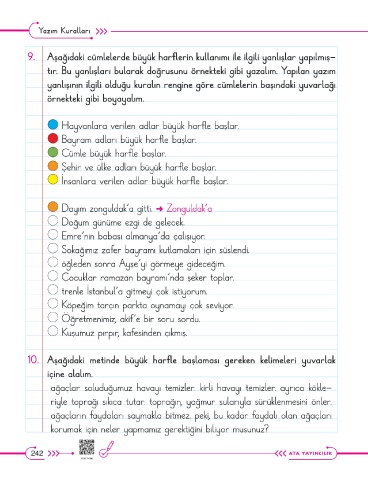 Yazım Kuralları
9. Aşağıdaki cümlelerde büyük harflerin kullanımı ile ilgili yanlışlar yapılmış-
tır. Bu yanlışları bularak doğrusunu örnekteki gibi yazalım. Yapılan yazım
yanlışının ilgili olduğu kuralın rengine göre cümlelerin başındaki yuvarlağı
örnekteki gibi boyayalım.
Hayvanlara verilen adlar büyük harfle başlar.
Bayram adları büyük harfle başlar.
Cümle büyük harfle başlar.
Şehir ve ülke adları büyük harfle başlar.
İnsanlara verilen adlar büyük harfle başlar.
Dayım zonguldak'a gitti. → Zonguldak'a
Doğum günüme ezgi de gelecek.
Emre'nin babası almanya'da çalışıyor.
Sokağımız zafer bayramı kutlamaları için süslendi.
öğleden sonra Ayşe'yi görmeye gideceğim.
Çocuklar ramazan bayramı'nda şeker toplar.
trenle İstanbul'a gitmeyi çok istiyorum.
Köpeğim tarçın parkta oynamayı çok seviyor.
Öğretmenimiz, akif'e bir soru sordu.
Kuşumuz pırpır, kafesinden çıkmış.
10. Aşağıdaki metinde büyük harfle başlaması gereken kelimeleri yuvarlak
içine alalım.
ağaçlar soluduğumuz havayı temizler. kirli havayı temizler. ayrıca kökle-
riyle toprağı sıkıca tutar. toprağın, yağmur sularıyla sürüklenmesini önler.
ağaçların faydaları saymakla bitmez. peki, bu kadar faydalı olan ağaçları
korumak için neler yapmamız gerektiğini biliyor musunuz?
242
ATA YAYINCILIK